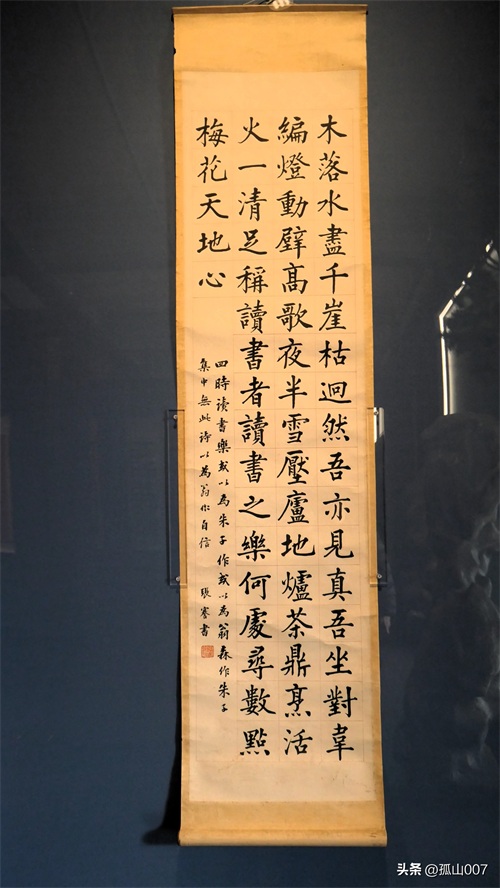 木落水盡千崖枯迥然吾亦見真吾坐對韋
編燈動壁高歌夜半雪壓廬地爐茶鼎烹活
火一清足稱讀書者讀書之樂何處尋數點
梅花天地心
四時读書樂或以為朱子作或以為翁森作朱子
集中無此诗以為翁作自信 張謇書
头条 @孤山007